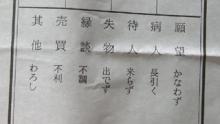 願望 かなわず
病人 長引く
待人 来らず
失物 出でず
縁談 不調
売買 不利
其他 わろし